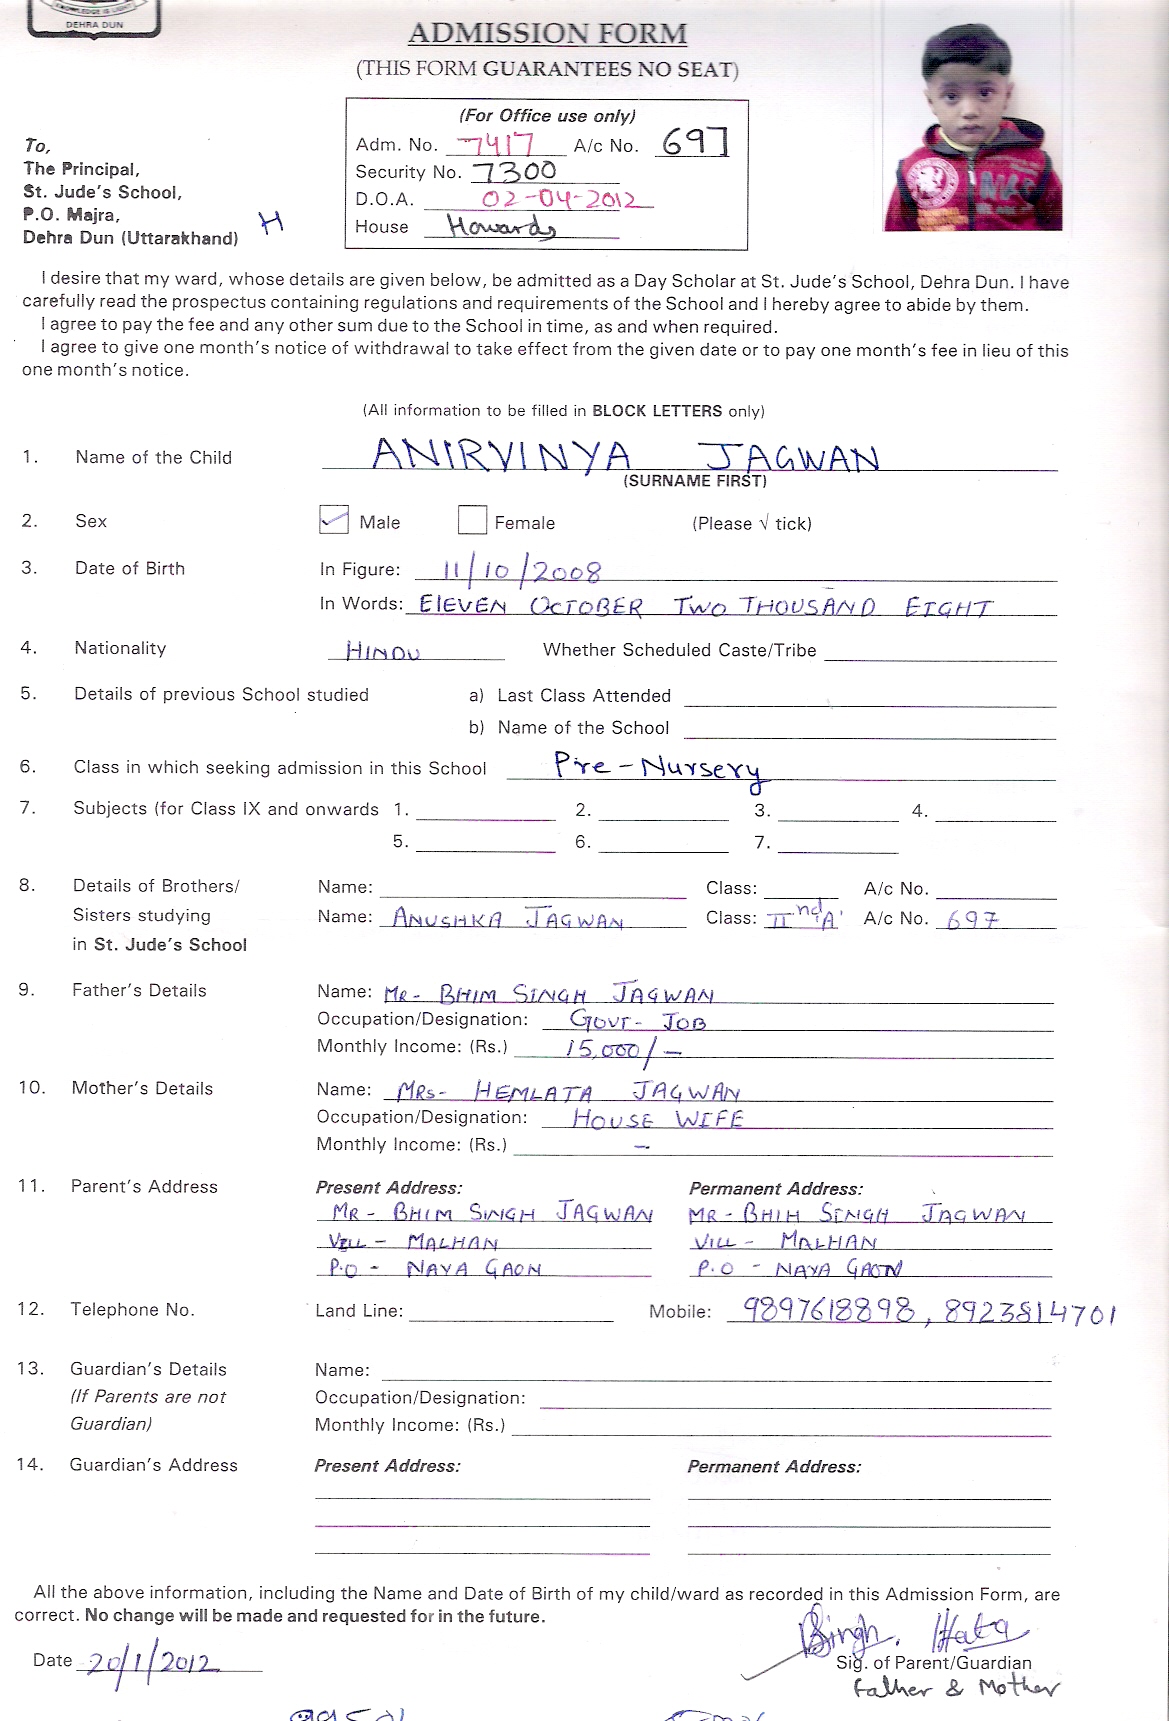 KNOWLEDGE IS LIGHT
DEHRA DUN
ADMISSION FORM
(THIS FORM GUARANTEES NO SEAT)
(For Office use only)
Adm. No. 7417 A/c No. 697
Security No. 7300
D.O.A. 02-04-2012
House Howards
To,
The Principal,
St. Jude's School,
P.O. Majra,
Dehra Dun (Uttarakhand)
H
I desire that my ward, whose details are given below, be admitted as a Day Scholar at St. Jude's School, Dehra Dun. I have
carefully read the prospectus containing regulations and requirements of the School and I hereby agree to abide by them.
I agree to pay the fee and any other sum due to the School in time, as and when required.
I agree to give one month's notice of withdrawal to take effect from the given date or to pay one month's fee in lieu of this
one month's notice.
(All information to be filled in BLOCK LETTERS only)
1. Name of the Child ANIRVINYA JAGWAN
(SURNAME FIRST)
2. Sex Male Female (Please √ tick)
3. Date of Birth In Figure: 11/10/2008
In Words: ElEVEN OCTOBER TWO THOUSAND EIGHT
4. Nationality HINDU Whether Scheduled Caste/Tribe
5. Details of previous School studied a) Last Class Attended
b) Name of the School
6. Class in which seeking admission in this School Pre-Nursery
7. Subjects (for Class IX and onwards 1. 2. 3. 4.
5. 6. 7.
8. Details of Brothers/ Name: Class: A/c No.
Sisters studying Name: ANUSHKA JAGWAN Class: IInd 'A' A/c No. 697
in St. Jude's School
9. Father's Details Name: MR- BHIM SINGH JAGWAN
Occupation/Designation: GOVT- JOB
Monthly Income: (Rs.) 15,000/-
10. Mother's Details Name: MRS- HEMLATA JAGWAN
Occupation/Designation: HOUSE WIFE
Monthly Income: (Rs.) -
11. Parent's Address Present Address: Permanent Address:
MR- BHIM SINGH JAGWAN MR- BHIM SINGH JAGWAN
VILL- MALHAN VILL- MALHAN
P.O - NAYA GAON P.O - NAYA GAON
12. Telephone No. Land Line: Mobile: 9897618898, 8923814701
13. Guardian's Details Name:
(If Parents are not Occupation/Designation:
Guardian) Monthly Income: (Rs.)
14. Guardian's Address Present Address: Permanent Address:
All the above information, including the Name and Date of Birth of my child/ward as recorded in this Admission Form, are
correct. No change will be made and requested for in the future.
BSingh. Hata
Date 20/1/2012 Sig. of Parent/Guardian
Father & Mother